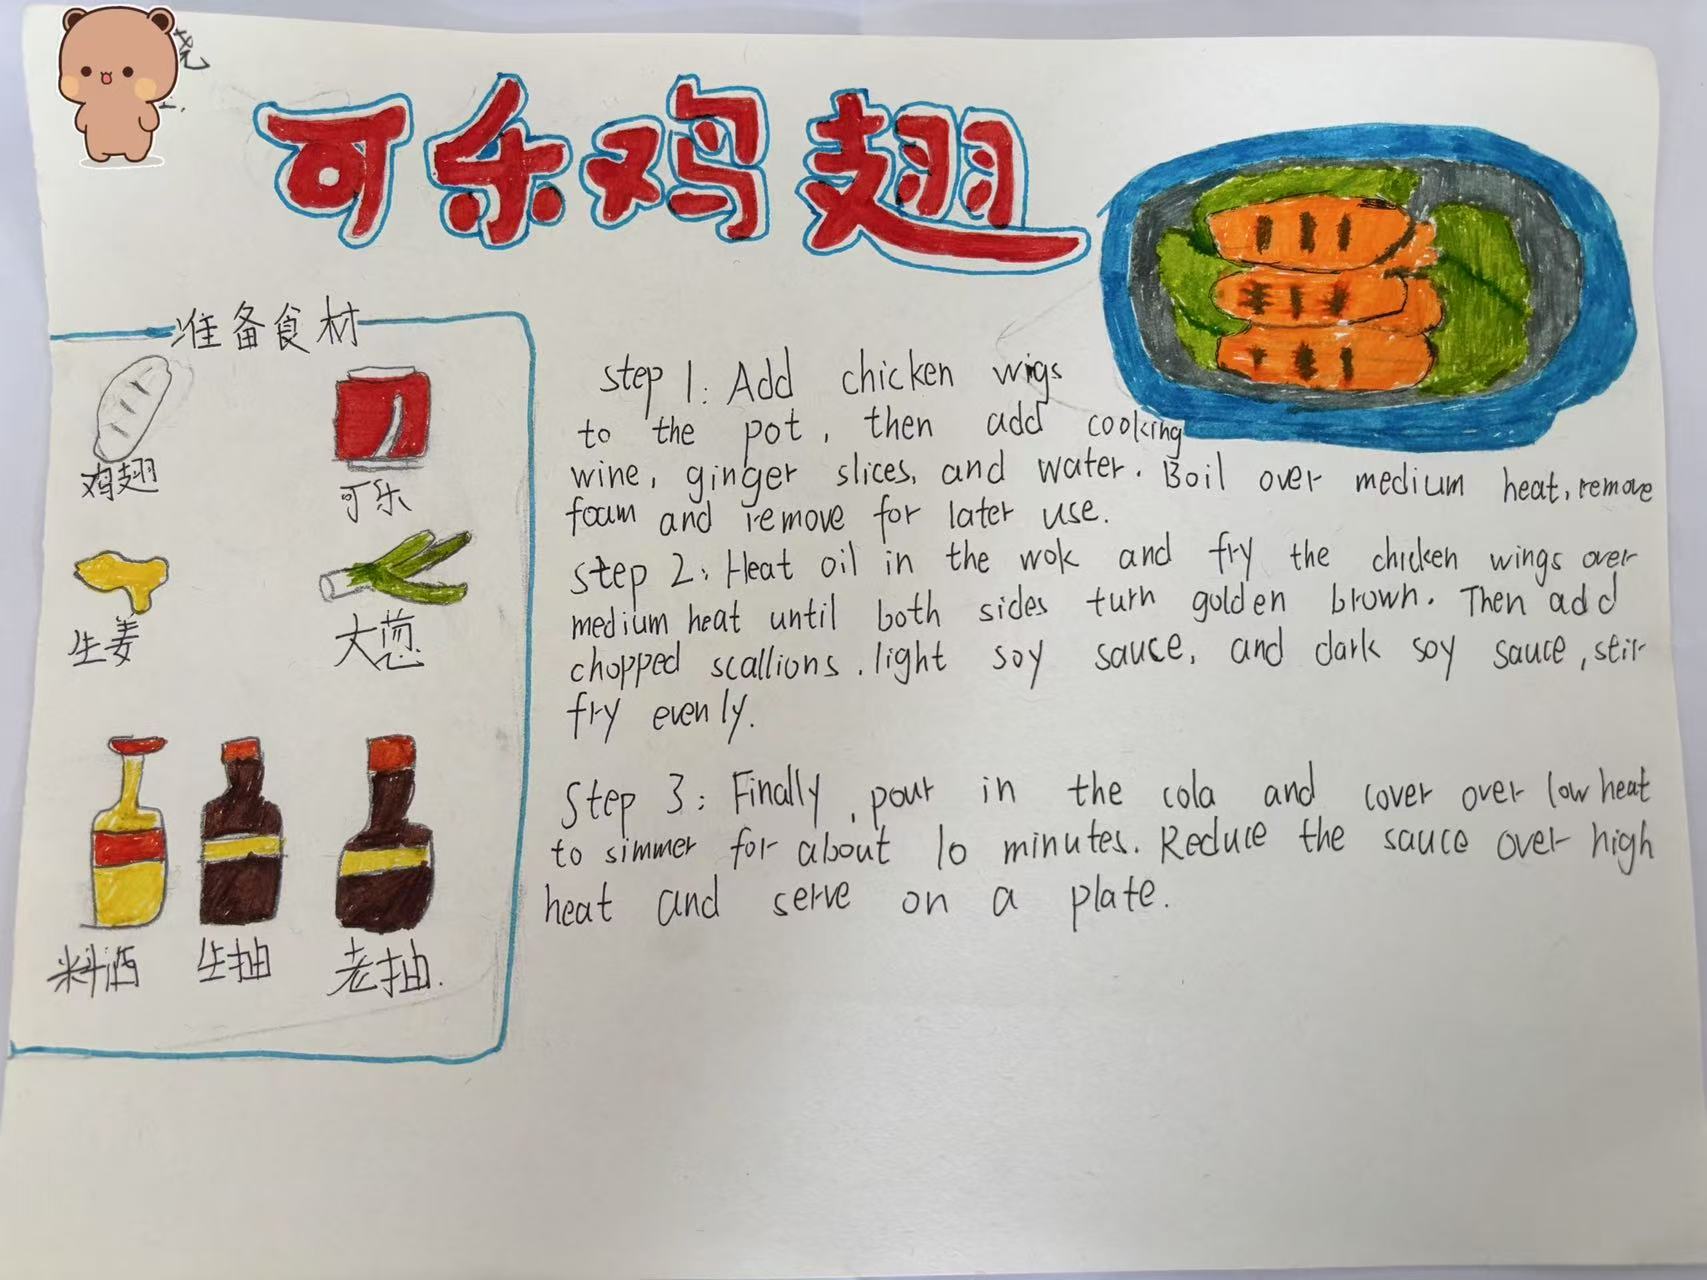 可乐鸡翅
准备食材
鸡翅
可乐
生姜
大葱
料酒
生抽
老抽.
step 1: Add chicken wigs
to the pot, then add cooking
wine, ginger slices, and water. Boil over medium heat, remove
foam and remove for later use.
step 2: Heat oil in the wok and fry the chicken wings over
medium heat until both sides turn golden brown. Then add
chopped scallions, light soy sauce, and dark soy sauce, stir
fry evenly.
Step 3: Finally, pour in the cola and cover over low heat
to simmer for about 10 minutes. Reduce the sauce over high
heat and serve on a plate.